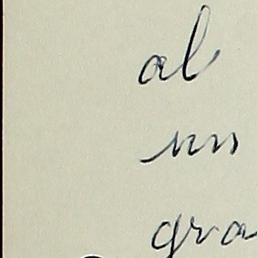 al
un
gra